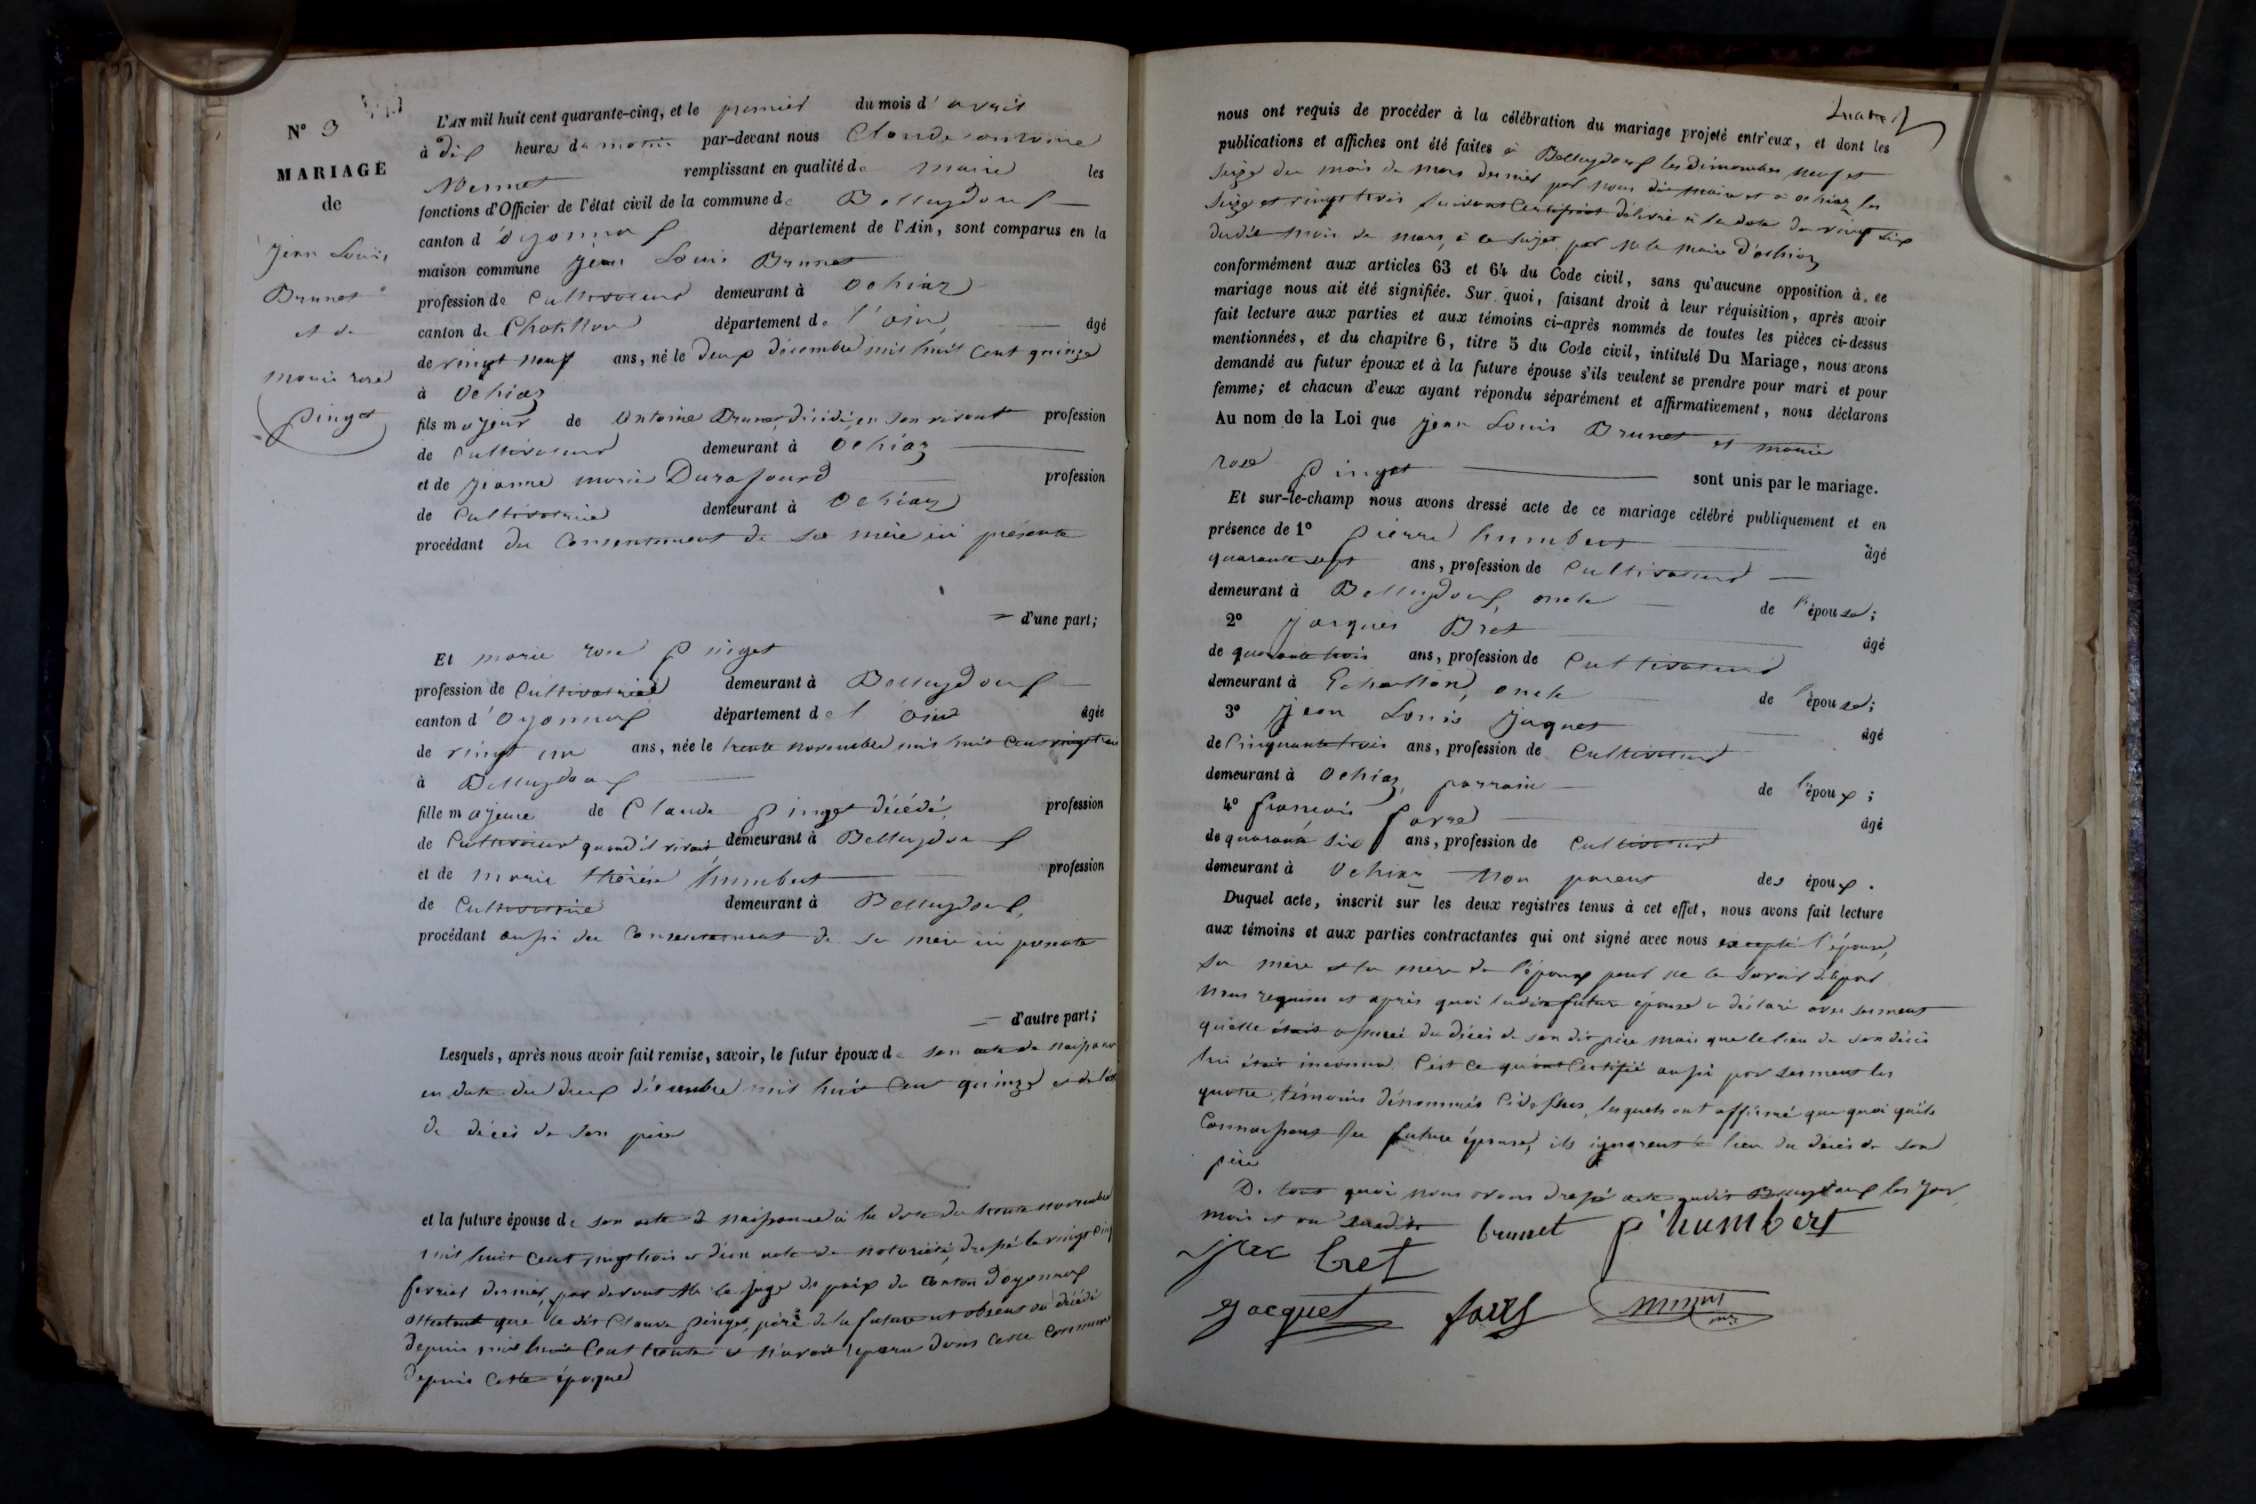 N° 3
MARIAGE
de
jean Louis
Brunet
et de
marie rose
pinget
L'AN mil huit cent quarante-cinq, et le premier du mois d'avril
à dix heures du matin par-devant nous Claude antoine
remplissant en qualité de maire les
fonctions d'Officier de l'état civil de la commune de Belleydoux
canton d'oyonnax département de l'Ain, sont comparus en la
maison commune jean Louis Brunet
profession de Cultivateur demeurant à Ochiaz
canton de Chatillon département de l'ain âgé
de vingt neuf ans, né le deux décembre mil huit cent quinze
à Ochiaz
fils majeur de antoine Brunet, décédé, en son vivant profession
de Cultivateur demeurant à Ochiaz
et de jeanne marie Durafourd profession
de Cultivatrice demeurant à Ochiaz
procédant du Consentement de sa mère ici présente
d'une part;
Et marie rose pinget
profession de Cultivatrice demeurant à Belleydoux
canton d'Oyonnax département de l'ain âgée
de vingt un ans, née le trente novembre mil huit cent vingt trois
à Belleydoux
fille majeure de Claude pinget décédé, profession
de Cultivateur quand il vivait, demeurant à Belleydoux
et de marie thérèse humbert profession
de Cultivatrice demeurant à Belleydoux,
procédant aussi du Consentement de sa mère ici présente
d'autre part;
Lesquels, après nous avoir fait remise, savoir, le futur époux de son acte de naissance
en date du deux décembre mil huit Cent quinze et de l'acte
de décès de son père
et la future épouse de son acte de naissance à la date du trente novembre
mil huit Cent vingt trois et d'un acte de notoriété, dressé le vingt cinq
fevrier dernier, par devant Mr le juge de paix du canton d'oyonnax
attestant que le dit Claude pinget, père de la future est absent ou décédé
depuis mil huit Cent trente et n'avait reparu dans cette commune
depuis cette époque
nous ont requis de procéder à la célébration du mariage projeté entr'eux, et dont les
publications et affiches ont été faites à Belleydoux les dimanches neuf et
seize du mois de mars dernier par nous dit maire et à ochiaz les
seize et vingt trois suivant Certificat délivré à la date du vingt six
dudit mois de mars, à ce sujet par Mr le maire d'ochiaz
conformément aux articles 63 et 64 du Code civil, sans qu'aucune opposition à ce
mariage nous ait été signifiée. Sur quoi, faisant droit à leur réquisition, après avoir
fait lecture aux parties et aux témoins ci-après nommés de toutes les pièces ci-dessus
mentionnées, et du chapitre 6, titre 5 du Code civil, intitulé Du Mariage, nous avons
demandé au futur époux et à la future épouse s'ils veulent se prendre pour mari et pour
femme; et chacun d'eux ayant répondu séparément et affirmativement, nous déclarons
Au nom de la Loi que jean Louis Brunet et marie
rose pinget sont unis par le mariage.
Et sur-le-champ nous avons dressé acte de ce mariage célébré publiquement et en
présence de 1° pierre humbert âgé
quarante sept ans, profession de Cultivateur
demeurant à Belleydoux, oncle de l'épouse;
2° jacques Bret âgé
de quarante trois ans, profession de Cultivateur
demeurant à Echallon, oncle de l'épouse;
3° jean Louis jaquet âgé
de Cinquante trois ans, profession de Cultivateur
demeurant à Ochiaz, parrain de l'époux;
4° françois favre âgé
de quarante six ans, profession de Cultivateur
demeurant à Ochiaz non parent des époux.
Duquel acte, inscrit sur les deux registres tenus à cet effet, nous avons fait lecture
aux témoins et aux parties contractantes qui ont signé avec nous excepté l'épouse,
sa mère et la mère de l'époux pour ne le savoir de par
nous requises et après quoi ladite future épouse a déclaré avec serment
qu'elle était assurée du décès de son dit père mais que le lieu de son décès
lui était inconnu. C'est ce qu'ont Certifié aussi par serment les
quatre témoins dénommés Ci dessus, lesquels ont affirmé que quoi qu'ils
Connaissent la future épouse, ils ignorent le lieu du décès de son
père
De tout quoi nous avons dressé acte audit Belleydoux les jour
mois et an susdits brunet p humbert
jac bret
jacquet favre